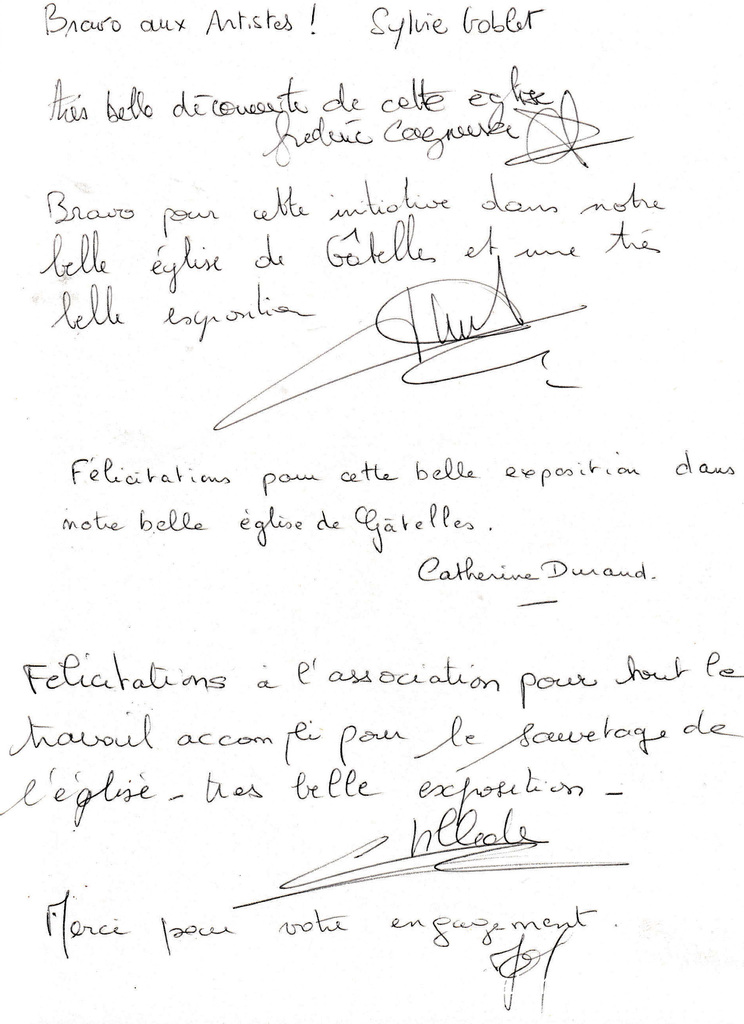 Bravo aux Artistes ! Sylvie Goblet
très belle découverte de cette église
frederic
Bravo pour cette initiative dans notre
belle église de Gâtelles et une très
belle exposition
Félicitations pour cette belle exposition dans
notre belle église de Gâtelles.
Catherine Durand.
Félicitations à l'association pour tout le
travail accompli pour le sauvetage de
l'église - très belle exposition -
Merci pour votre engagement.